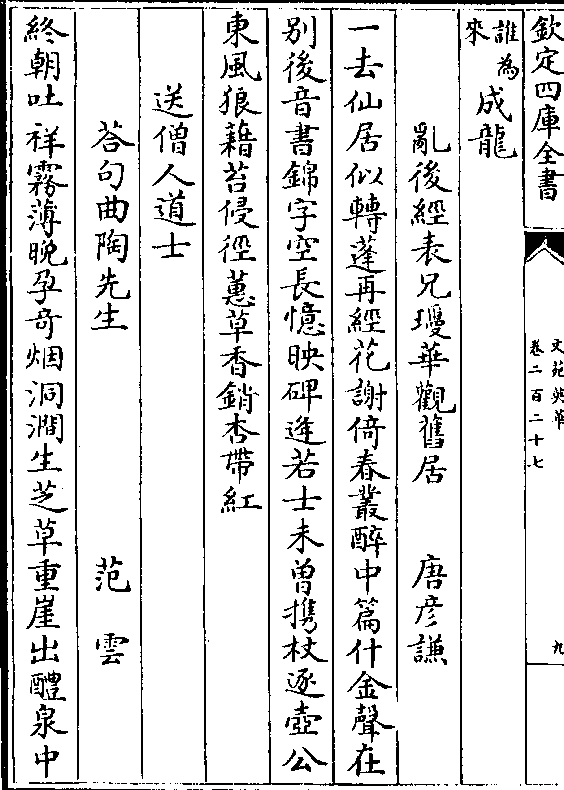 欽定四庫全書
文苑英華
卷二百二十七
九
來誰為成龍
亂後經表兄瓊華觀舊居 唐彦謙
一去仙居似轉蓬再經花謝倚春叢醉中篇什金聲在
别後音書錦字空長憶映碑逢若士未曾携杖逐壺公
東風狼藉苔侵徑蕙草香銷杏帶紅
送僧人道士
荅句曲陶先生 范雲
終朝吐祥霧薄晚孕奇烟洞澗生芝草重崖出醴泉中